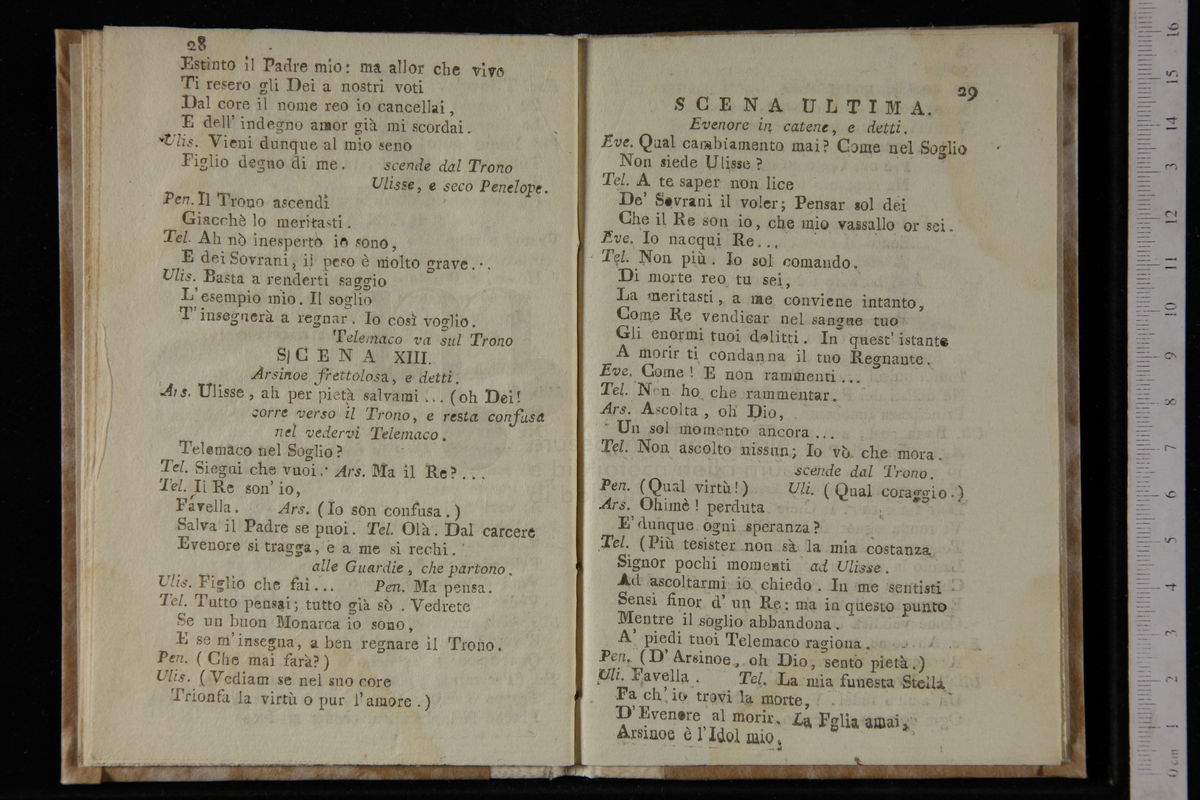 28
Estinto il Padre mio: ma allor che vivo
Ti resero gli Dei a nostri voti
Dal core il nome reo io cancellai,
E dell' indegno amor già mi scordai.
Ulis. Vieni dunque al mio seno
Figlio degno di me. scende dal Trono
Ulisse, e seco Penelope.
Pen. Il Trono ascendi
Giacchè lo meritasti.
Tel. Ah nò inesperto io sono,
E dei Sovrani, il peso è molto grave...
Ulis. Basta a renderti saggio
L' esempio mio. Il soglio
T' insegnerà a regnar. Io così voglio.
Telemaco va sul Trono
SCENA XIII.
Arsinoe frettolosa, e detti.
Ars. Ulisse, ah per pietà salvami ... (oh Dei!
corre verso il Trono, e resta confusa
nel vedervi Telemaco.
Telemaco nel Soglio?
Tel. Siegui che vuoi. Ars. Ma il Re?...
Tel. Il Re son' io,
Favella. Ars. (Io son confusa.)
Salva il Padre se puoi. Tel. Olà. Dal carcere
Evenore si tragga, e a me si rechi.
alle Guardie, che partono.
Ulis. Figlio che fai... Pen. Ma pensa.
Tel. Tutto pensai; tutto già sò. Vedrete
Se un buon Monarca io sono,
E se m' insegna, a ben regnare il Trono.
Pen. (Che mai farà?)
Ulis. (Vediam se nel suo core
Trionfa la virtù o pur l' amore.)
29
SCENA ULTIMA.
Evenore in catene, e detti.
Eve. Qual cambiamento mai? Come nel Soglio
Non siede Ulisse?
Tel. A te saper non lice
De' Sovrani il voler; Pensar sol dei
Che il Re son io, che mio vassallo or sei.
Eve. Io nacqui Re...
Tel. Non più. Io sol comando.
Di morte reo tu sei,
La meritasti, a me conviene intanto,
Come Re vendicar nel sangue tuo
Gli enormi tuoi delitti. In quest' istante
A morir ti condanna il tuo Regnante.
Eve. Come! E non rammenti...
Tel. Non ho che rammentar.
Ars. Ascolta, oh Dio,
Un sol momento ancora...
Tel. Non ascolto nissun; Io vò che mora.
scende dal Trono.
Pen. (Qual virtù!) Uli. (Qual coraggio.)
Ars. Ohimè! perduta
E' dunque ogni speranza?
Tel. (Più tesister non sà la mia costanza
Signor pochi momenti ad Ulisse.
Ad ascoltarmi io chiedo. In me sentisti
Sensi finor d' un Re: ma in questo punto
Mentre il soglio abbandona.
A' piedi tuoi Telemaco ragiona.
Pen. (D' Arsinoe, oh Dio, sento pietà.)
Uli. Favella. Tel. La mia funesta Stella
Fa ch' io trovi la morte,
D' Evenore al morir. La Fglia amai,
Arsinoe è l' Idol mio,
0 cm 1 2 3 4 5 6 7 8 9 10 11 12 13 14 15 16